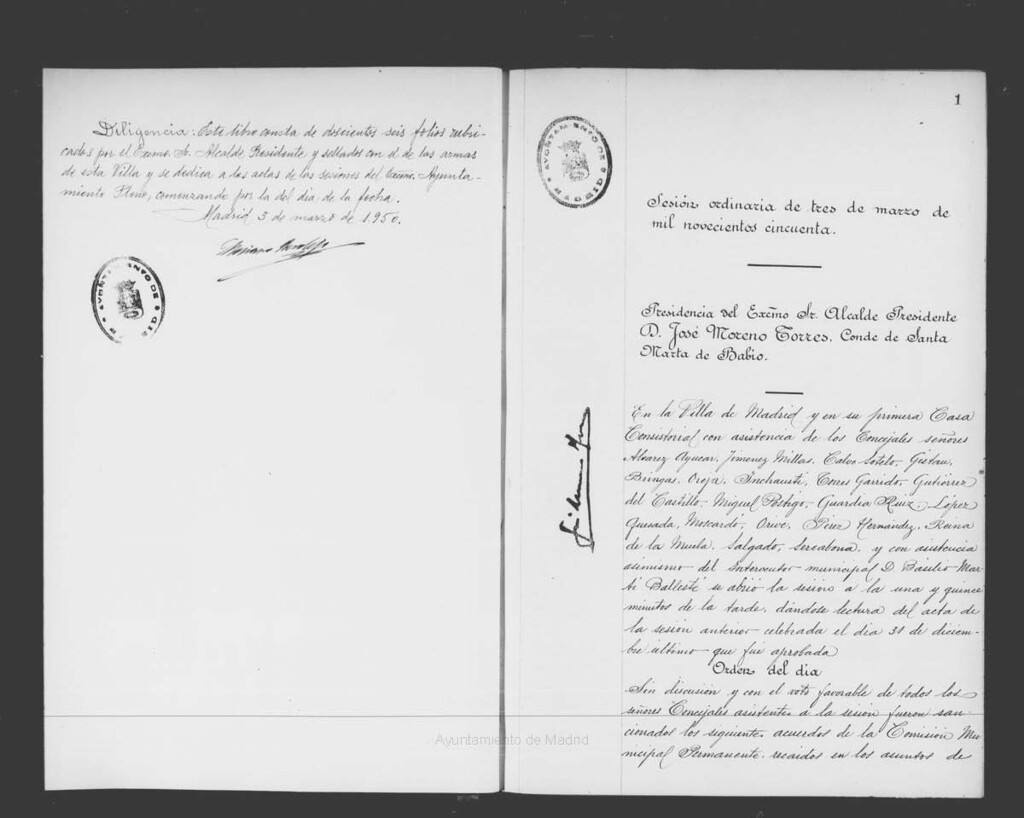 Diligencia: Este libro consta de doscientos seis folios rubri-
cados por el Excmo. Sr. Alcalde Presidente y sellados con el de las armas
de esta Villa y se dedica a las actas de las sesiones del Excmo. Ayunta-
miento Pleno, comenzando por la del dia de la fecha.
Madrid 3 de marzo de 1950.
AYUNTAMIENTO DE MADRID
1
AYUNTAMIENTO DE MADRID
Sesión ordinaria de tres de marzo de
mil novecientos cincuenta.
Presidencia del Excmo Sr. Alcalde Presidente
D. José Moreno Torres, Conde de Santa
Marta de Babio.
En la Villa de Madrid y en su primera Casa
Consistorial con asistencia de los Concejales señores
Alvarez Ayucar, Jimenez Millas, Calvo Sotelo, Gistau,
Bringas, Oreja, Inchausti, Torres Garrido, Gutiérrez
del Castillo, Miguel Postigo, Guardia Ruiz, López
Quesada, Moscardó, Orive, Pérez Hernández, Reina
de la Muela, Salgado, y con asistencia
asimismo del Interventor municipal D. Basilio Mar-
ti Ballesté se abrió la sesión a la una y quince
minutos de la tarde, dándose lectura del acta de
la sesión anterior celebrada el dia 31 de diciem-
bre último que fue aprobada
Orden del dia
Sin discusión y con el voto favorable de todos los
señores Concejales asistentes a la sesión fueron san-
cionados los siguientes acuerdos de la Comisión Mu-
nicipal Permanente, recaidos en los asuntos de
Ayuntamiento de Madrid